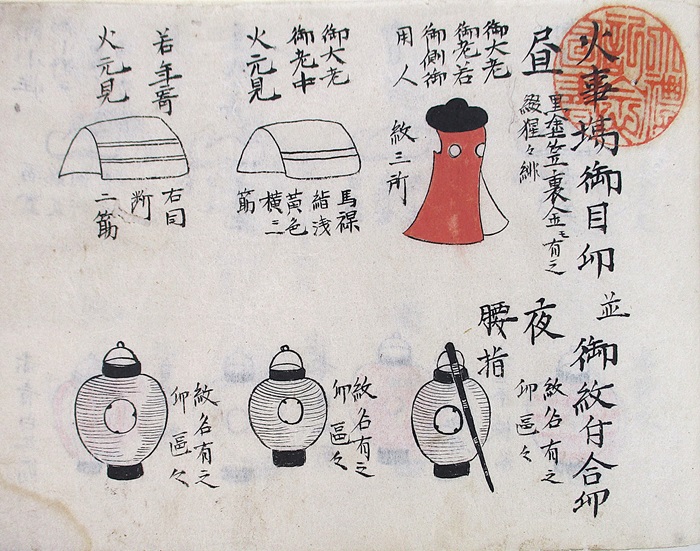 火事場御目印並御紋付合印
昼
黒塗笠裏金ニモ有之
緞猩々緋
御大老
御老若
御側御
用人
紋三所
御大老
御老中
火元見
馬褂
紺浅
黄色
横三
筋
若年寄
火元見
右同
断
二筋
夜
腰指
紋名有之
印區々
紋名有之
印區々
紋名有之
印區々